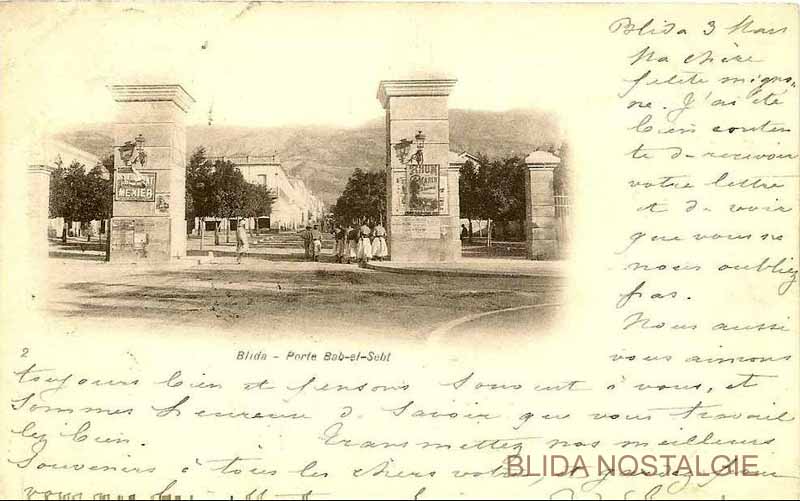 Blida 3 Mars
Ma chère
petite migno-
ne. J'ai été
bien conten
te de recevoir
votre lettre
et de voir
que vous ne
nous oubliez
pas.
Nous aussi
vous aimons
MENIER
RHUM
Blida - Porte Bab-el-Sebt
2
toujours bien et pensons souvent à vous, et
sommes heureuse de savoir que vous travail
lez bien. Transmettez nos meilleurs
souvenirs à tous les chers votres, et
BLIDA NOSTALGIE